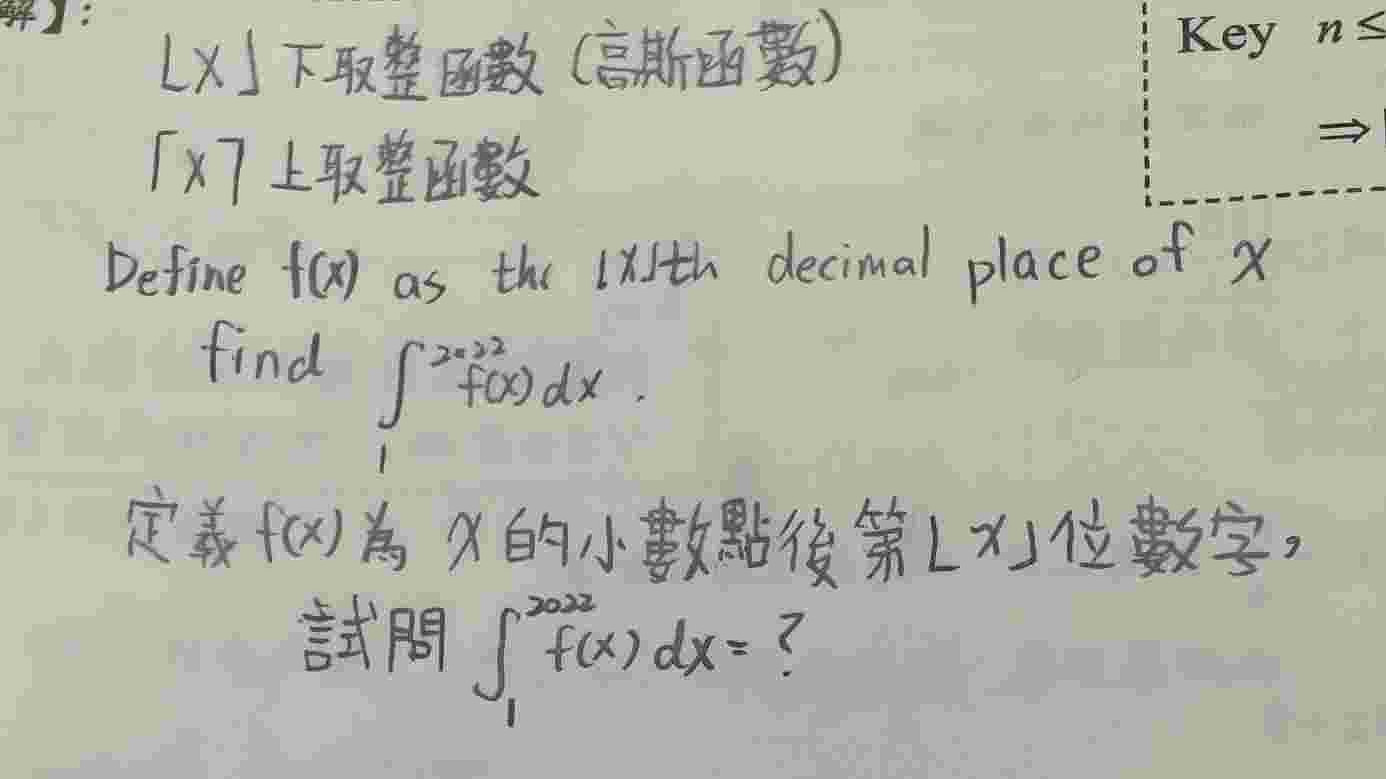 解】:
⌊x⌋ 下取整函數 (高斯函數)
Key n ≤
⌈x⌉ 上取整函數
⇒
Define f(x) as the ⌊x⌋th decimal place of x
find ∫₁²⁰²² f(x) dx .
定義 f(x) 為 x 的小數點後第⌊x⌋位數字，
試問 ∫₁²⁰²² f(x) dx = ?